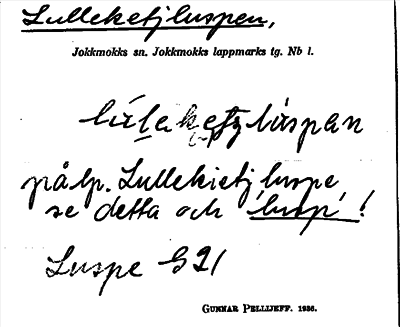 Lulleketjluspen,
Jokkmokks sn. Jokkmokks lappmarks tg. Nb l.
på lp. Lullekietjluspe,
se detta och 'lusp'!
Luspe G 21
GUNNAR PELLIJEFF. 1936.